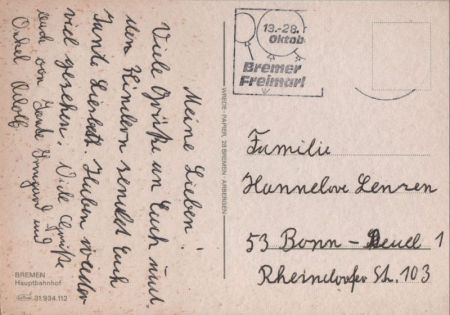 Meine Lieben!
Viele Grüße an Euch und
den Kindern sendet Euch
Tante Liesbeth. Haben wieder
viel gesehen. Viele Grüße
auch von Tante Irmgard und
Onkel Adolf
BREMEN
Hauptbahnhof
31.934.112
WREDE-PAPIER, 28 BREMEN
13.-28.
Oktob
Bremer
Freimarkt
Familie
Hannelore Lenzen
53 Bonn - Beuel 1
Rheindorfer Str. 103